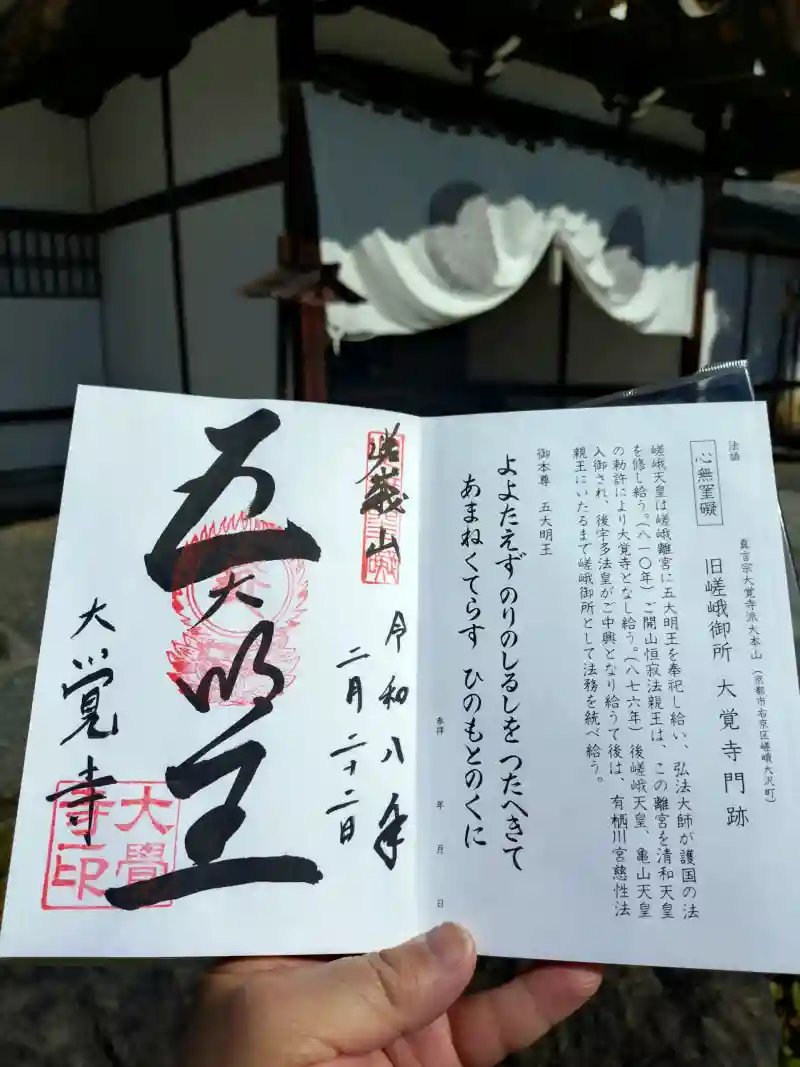 法語
心無罣礙
真言宗大覚寺派大本山（京都市右京区嵯峨大沢町）
旧嵯峨御所 大覚寺門跡
嵯峨天皇は嵯峨離宮に五大明王を奉祀し給い、弘法大師が護国の法
を修し給う。（八一〇年）ご開山恒寂法親王は、この離宮を清和天皇
の勅許により大覚寺となし給う。（八七六年）後嵯峨天皇、亀山天皇
入御され、後宇多法皇がご中興となり給うて後は、有栖川宮慈性法
親王にいたるまで嵯峨御所として法務を統べ給う。
御本尊 五大明王
よよたえず のりのしるしを つたへきて
あまねくてらす ひのもとのくに
参拝 年 月 日
嵯峨山
令和八年
二月二十二日
五大明王
大覚寺
大覺
寺印